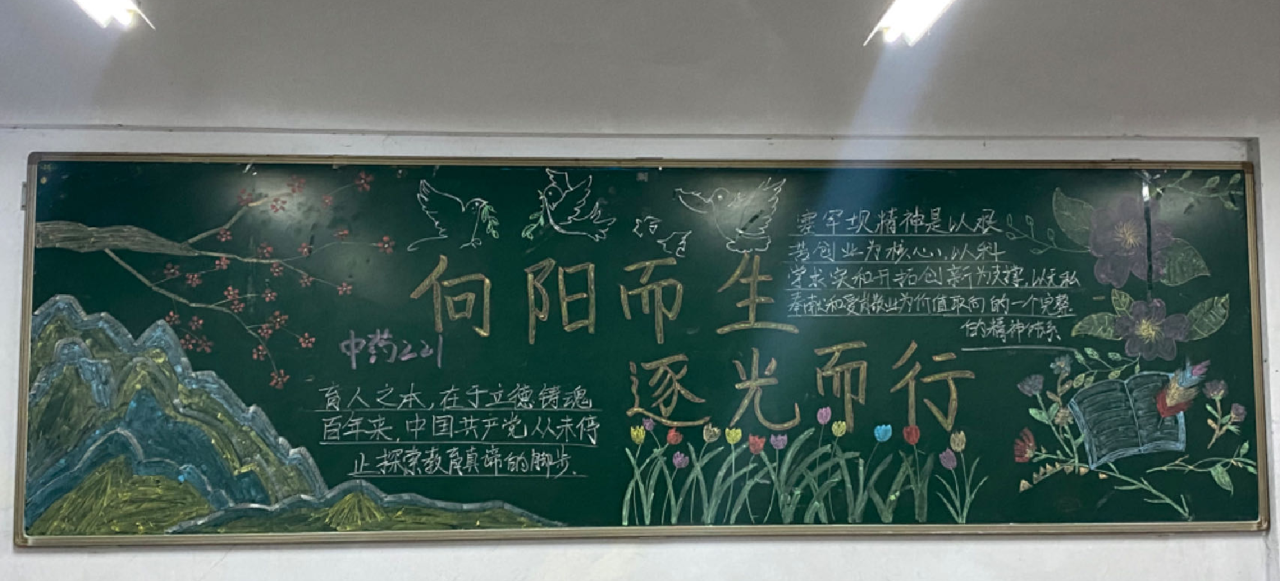 向阳而生
逐光而行
中药221
育人之本,在于立德铸魂
百年来,中国共产党从未停
止探索教育真谛的脚步.
塞罕坝精神是以艰
苦创业为核心,以科
学求实和开拓创新为支撑,以无私
奉献和爱岗敬业为价值取向的一个完整
的精神体系